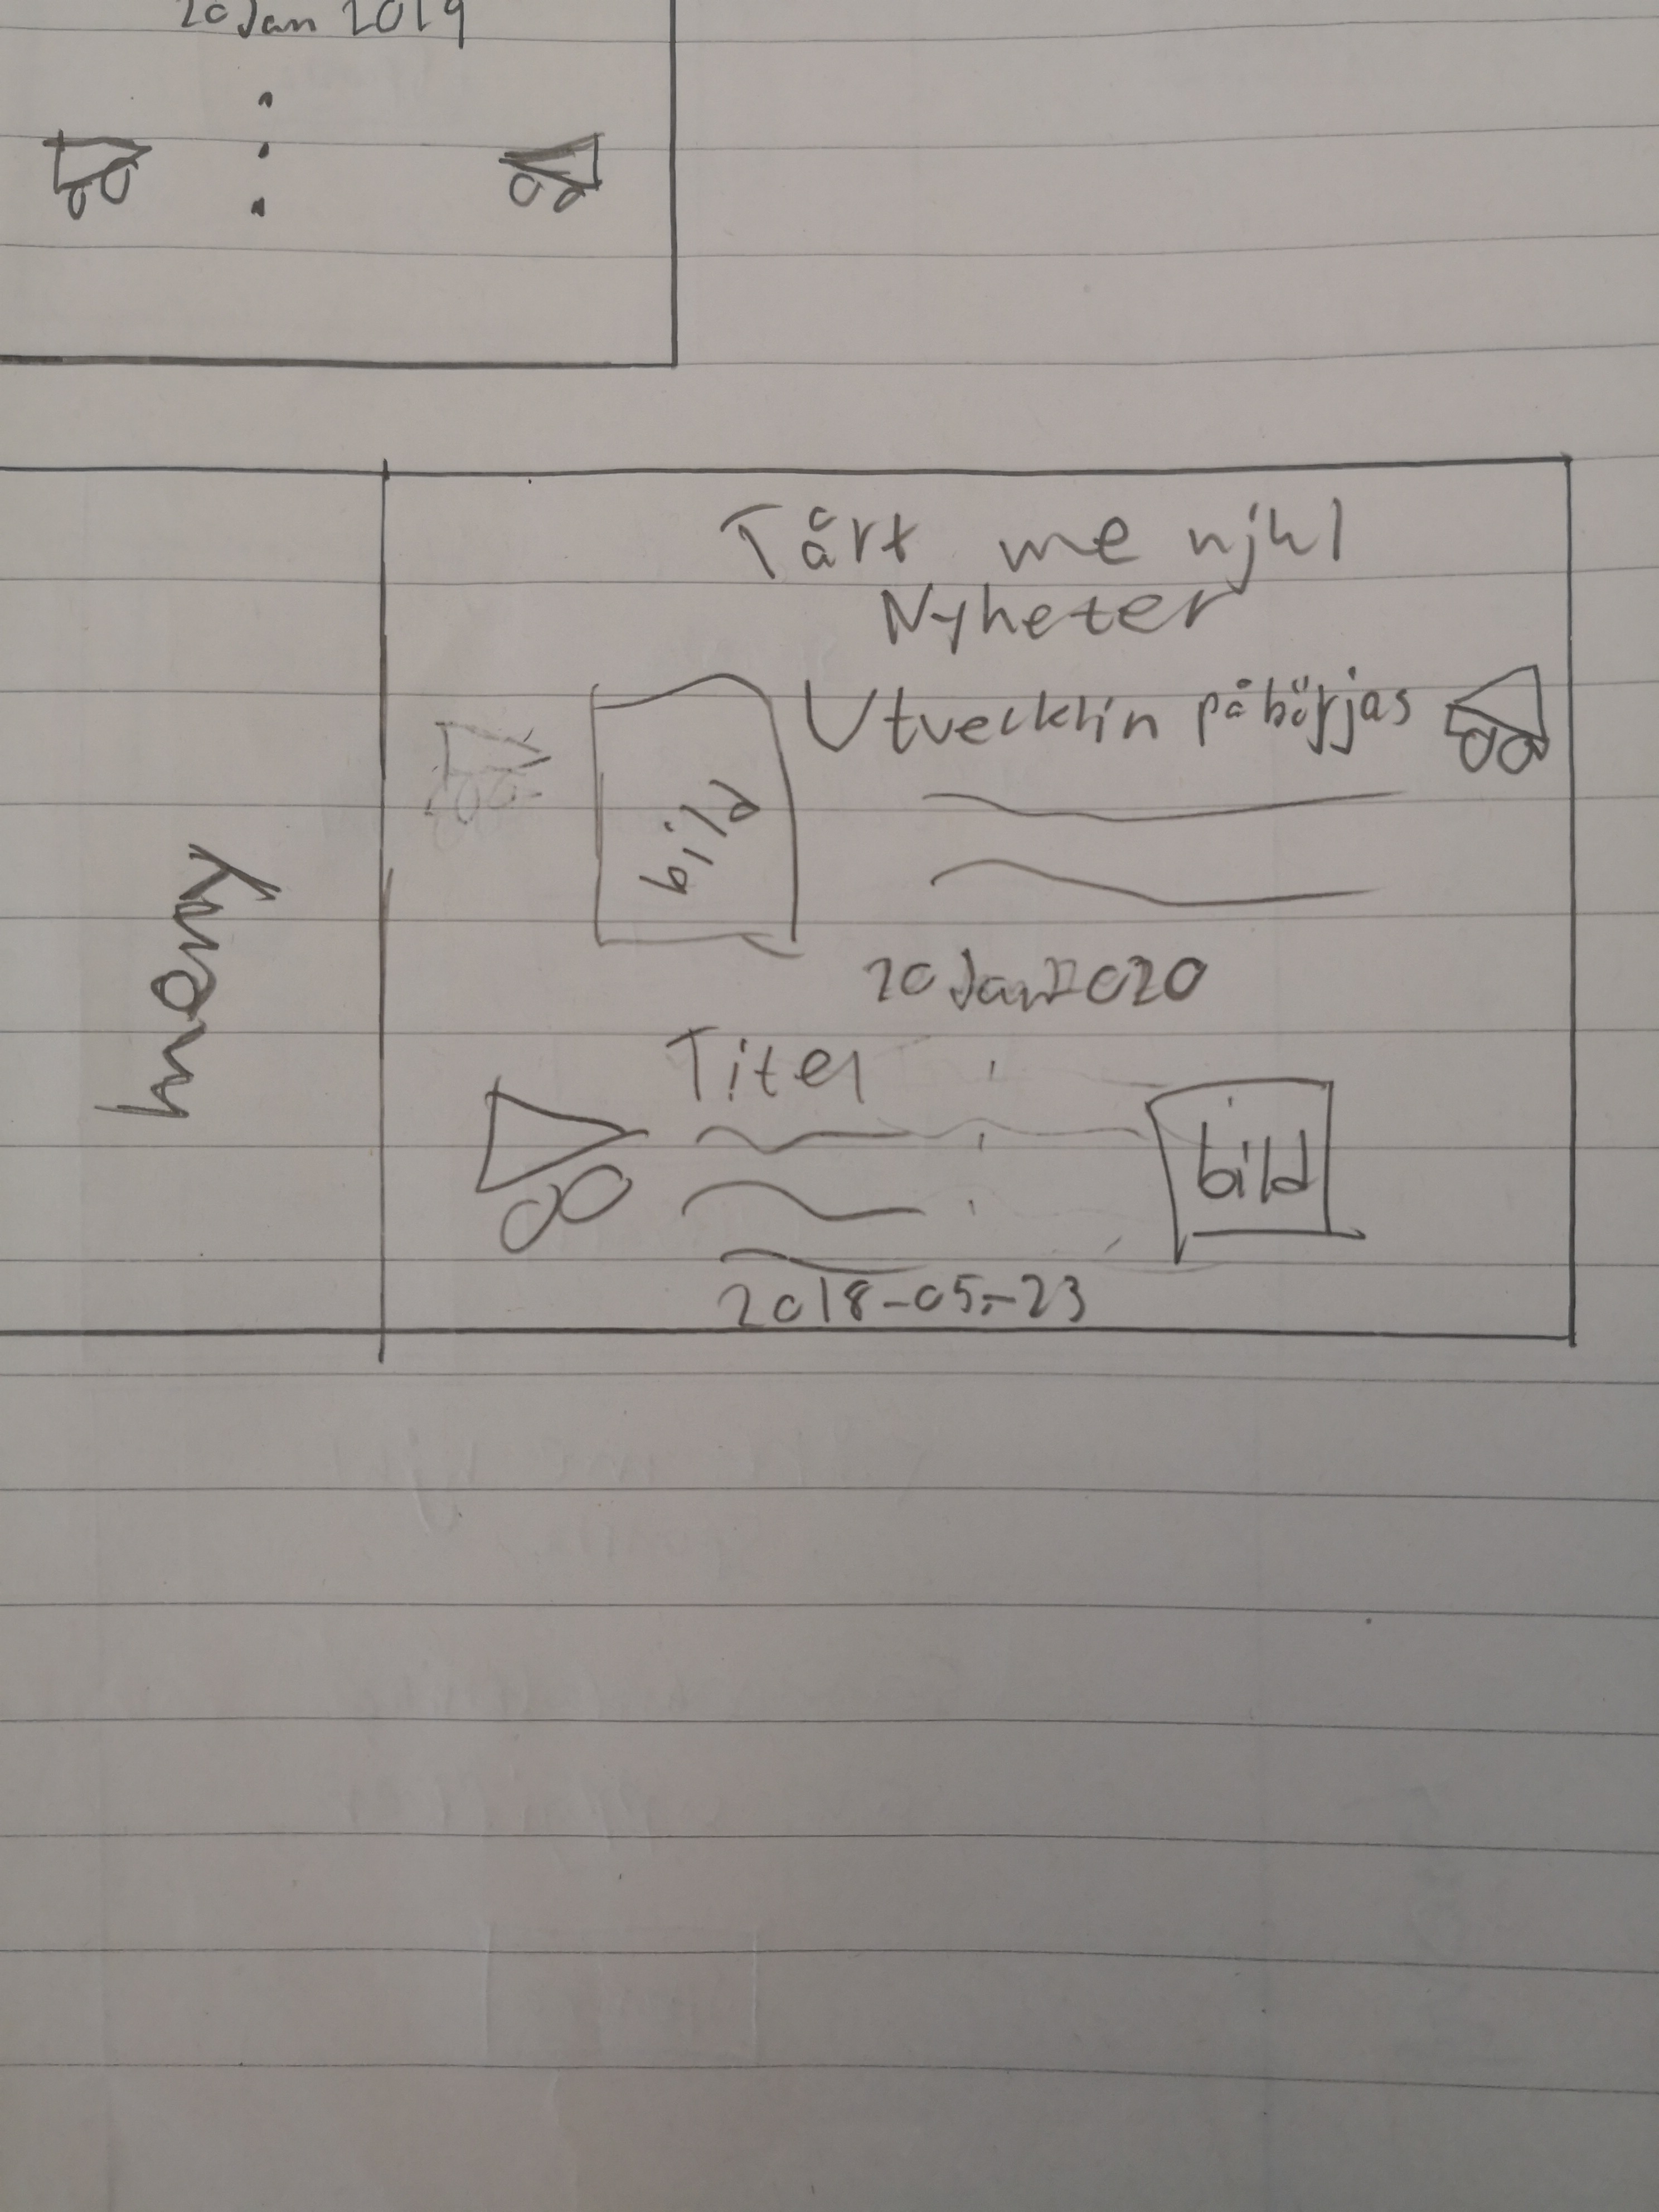 20 Jan 2019
Tårt me njul
Nyheter
Utvecklin påbörjas
bild
20 Jan 2020
meny
Titel
bild
2018-05-23